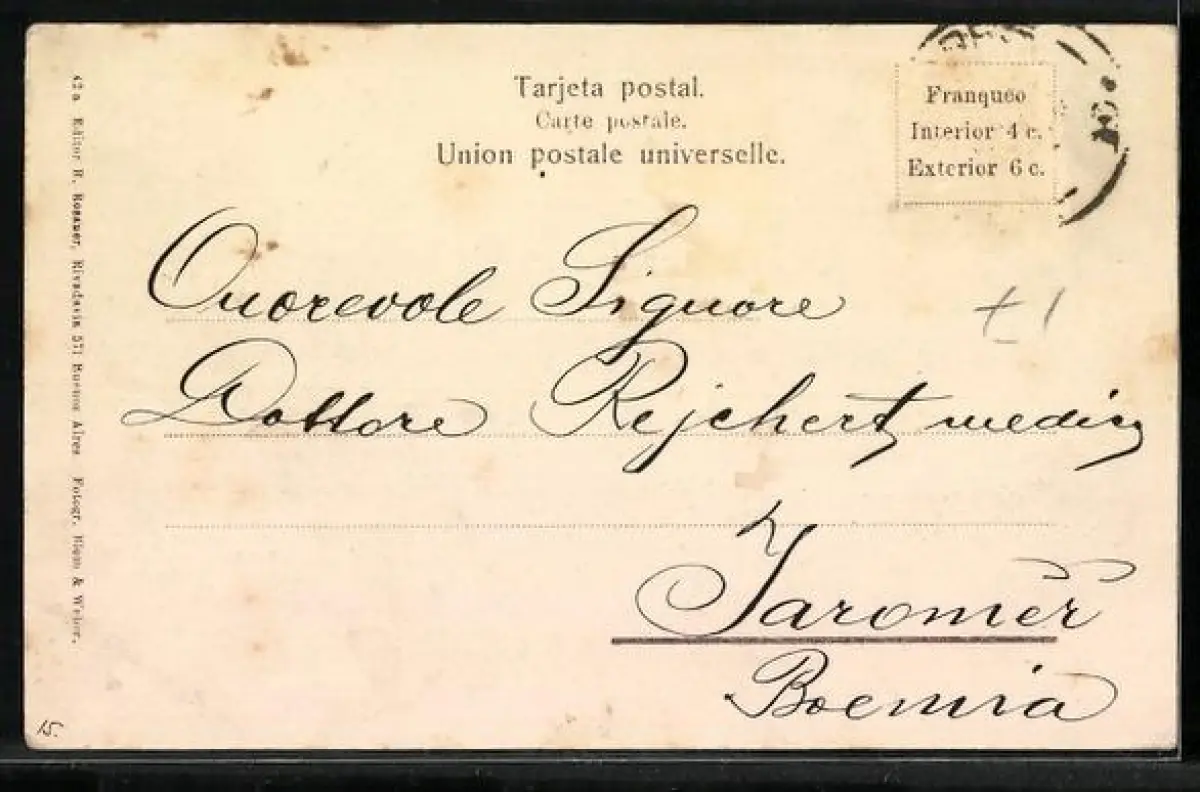 Tarjeta postal.
Carte postale.
Union postale universelle.
Franqueo
Interior 4 c.
Exterior 6 c.
Onorevole Signore
Dottore Rejchert medico
Jaroměř
Boemia
+1
42 a Editor R. Rosauer, Rivadavia 571 Buenos Aires Fotogr. & Weiser.
15.